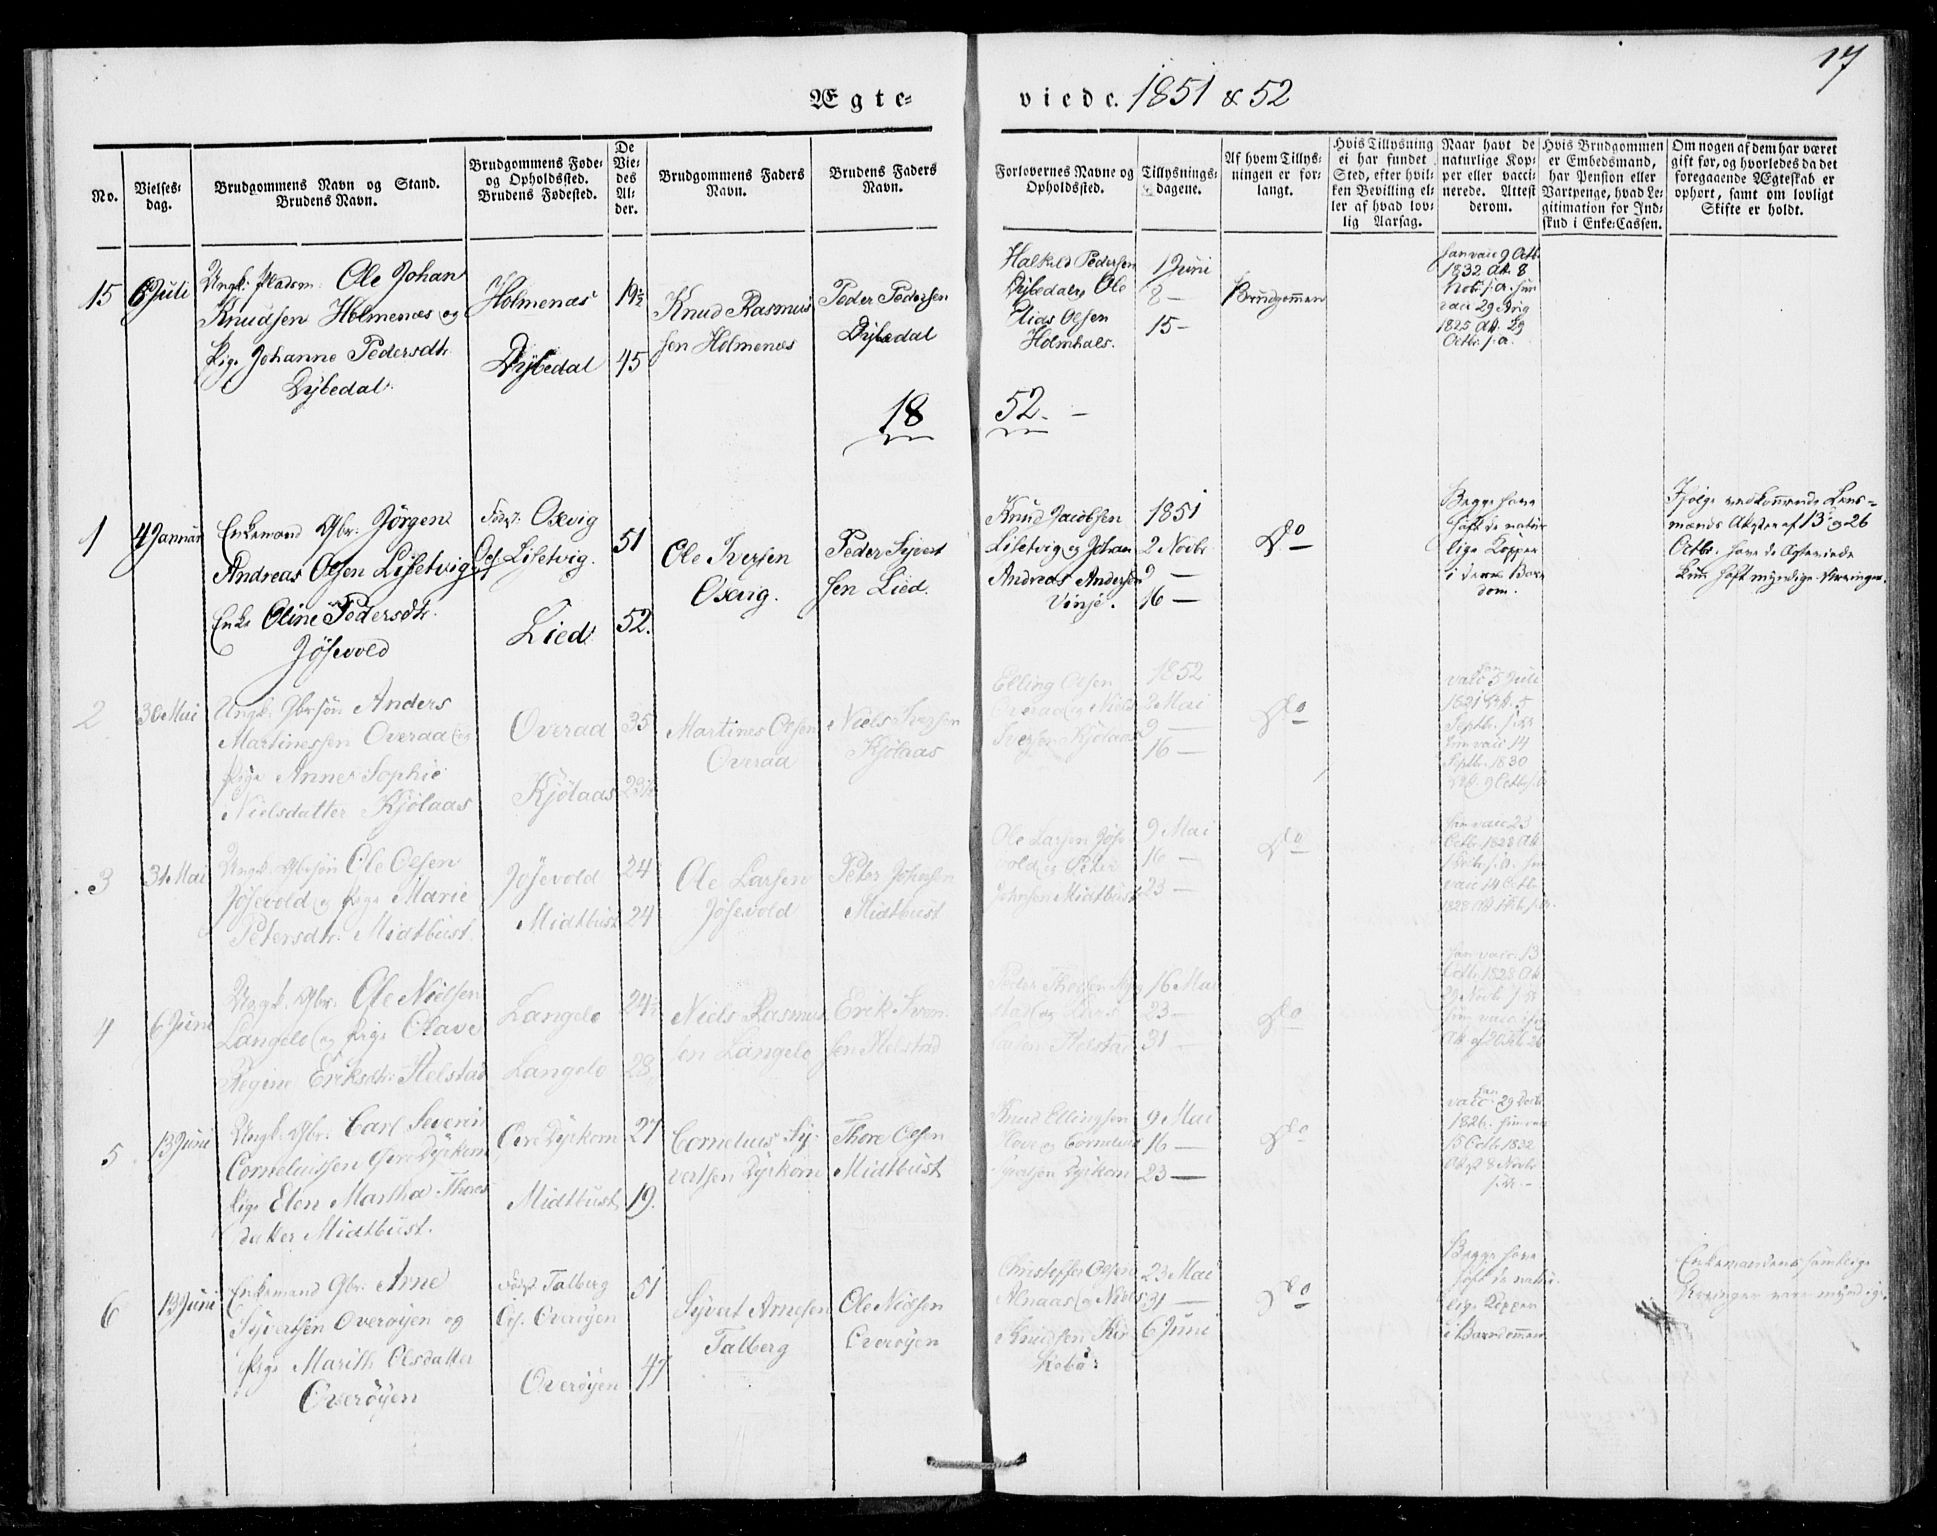 17
Ægte- viede. 1851 & 52
No.
Vielses-
dag.
Brudgommens Navn og Stand.
Brudens Navn.
Brudgommens Føde-
og Opholdssted.
Brudens Fødested.
De
Vie-
des
Al-
der.
Brudgommens Faders
Navn.
Brudens Faders
Navn.
Forlovernes Navne og
Opholdssted.
Tillysnings-
dagene.
Af hvem Tillys-
ningen er for-
langt.
Hvis Tillysning
ei har fundet
Sted, efter hvil-
ken Bevilling el-
ler af hvad lov-
lig Aarsag.
Naar havt de
naturlige Kop-
per eller vacci-
nerede. Attest
derom.
Hvis Brudgommen
er Embedsmand,
har Pension eller
Vartpenge, hvad Le-
gitimation for Ind-
skud i Enke-Cassen.
Om nogen af dem har været
gift før, og hvorledes da det
foregaaende Ægteskab er
ophørt, samt om lovligt
Skifte er holdt.
15
6 Juli
Ungk. Pladsm. Ole Johan
Knudsen Holmenæs og
Pige Johanne Pedersdtr.
Dybedal.
Holmenæs
Dybedal
19½
45
Knud Rasmus
sen Holmenæs
Peder Pedersen
Dybedal
Halkild Pedersen
Dybedal, Ole
Elias Olsen
Holmhals.
1 Juni
8 —
15 —
Brudgommen
Han vacc 9 Octb.
1832 Att. 8
Novb. s.A. hun
vacc 29 Aug
1825 Att. 29
Octbr. s.a.
1852. —
1
4 Januar
Enkemand Gbr. Jörgen
Andreas Olsen Lisetvig
Enke Oline Pedersdtr.
Jösevold
Födes. Oxevig
Oph. Lisetvig.
Lied
51
52.
Ole Iversen
Oxevig.
Peder Sjvert
sen Lied.
Knud Jacobsen
Lisetvig og Johan
Andreas Andersen
Vinje.
1851
2 Novbr
9 —
16 —
Do
Begge have
havt de natur
lige Kopper
i deres Barn
dom.
Ifölge vedkommende Lens-
mænds Attester af 13 og 26
Octbr. have de Ægteviede
kun havt myndige Arvinger.
2
30 Mai
Ungk. Gbrsön Anders
Martinessen Overaa og
Pige Anne Sophie
Nielsdatter Kjölaas
Overaa
Kjölaas
35
Martines Olsen
Overaa
Niels Iversen
Kjölaas
Elling Olsen
Overaa og Niels
Iversen Kjölaas
1852
2 Mai
9 —
16 —
Do
vacc 5 Juli
1821 Att. 5
Septb. s.A.
hun vacc 14
Septb. 1830
Att. 9 Octb. s.A
3
31 Mai
Ungk. Gbrsön Ole Olsen
Jösevold og Pige Marie
Petersdtr. Midtbust
Jösevold
Midtbust
24
24
Ole Larsen
Jösevold
Peter Johnsen
Midtbust
Ole Larsen Jöse
vold og Peter
Johnsen Midtbust
9 Mai
16 —
23 —
Do
4
6 Juni
Ungk. Gbr. Ole Nielsen
Langelo og Pige Olave
Regine Eriksdtr. Helstad
Langelo
Langelo
24½
28
Niels Rasmus
sen Langelo
Erik Ivar
sen Helstad
16 Mai
23 —
31 —
Do
5
13 Juni
Ungk. Gbr. Carl Severin
Corneliussen Övre Dyrkorn
Pige Elen Martha Thores
datter Midtbust.
Övre Dyrkorn
Midtbust
27
19.
Cornelius Sy-
vertsen Dyrkorn
Thore Olsen
Midtbust
Knud Ellingsen
Hove og Cornelius
Syvertsen Dyrkorn
9 Mai
16 —
23 —
Do
6
13 Juni
Enkemand Gbr. Arne
Syvertsen Overöyen og
Pige Marith Olsdatter
Overöyen
Födes. Talberg
Oph. Overöyen
Overöyen
51
47
Syvert Arnesen
Talberg
Ole Nielsen
Overöyen
Christopher Olsen
Alnaas og Niels
Knudsen Kir
kebö.
23 Mai
31 —
6 Juni
Do
Begge have
havt de natur
lige Kopper
i Barndommen
Enkemandens samtlige
Arvinger vare myndige.